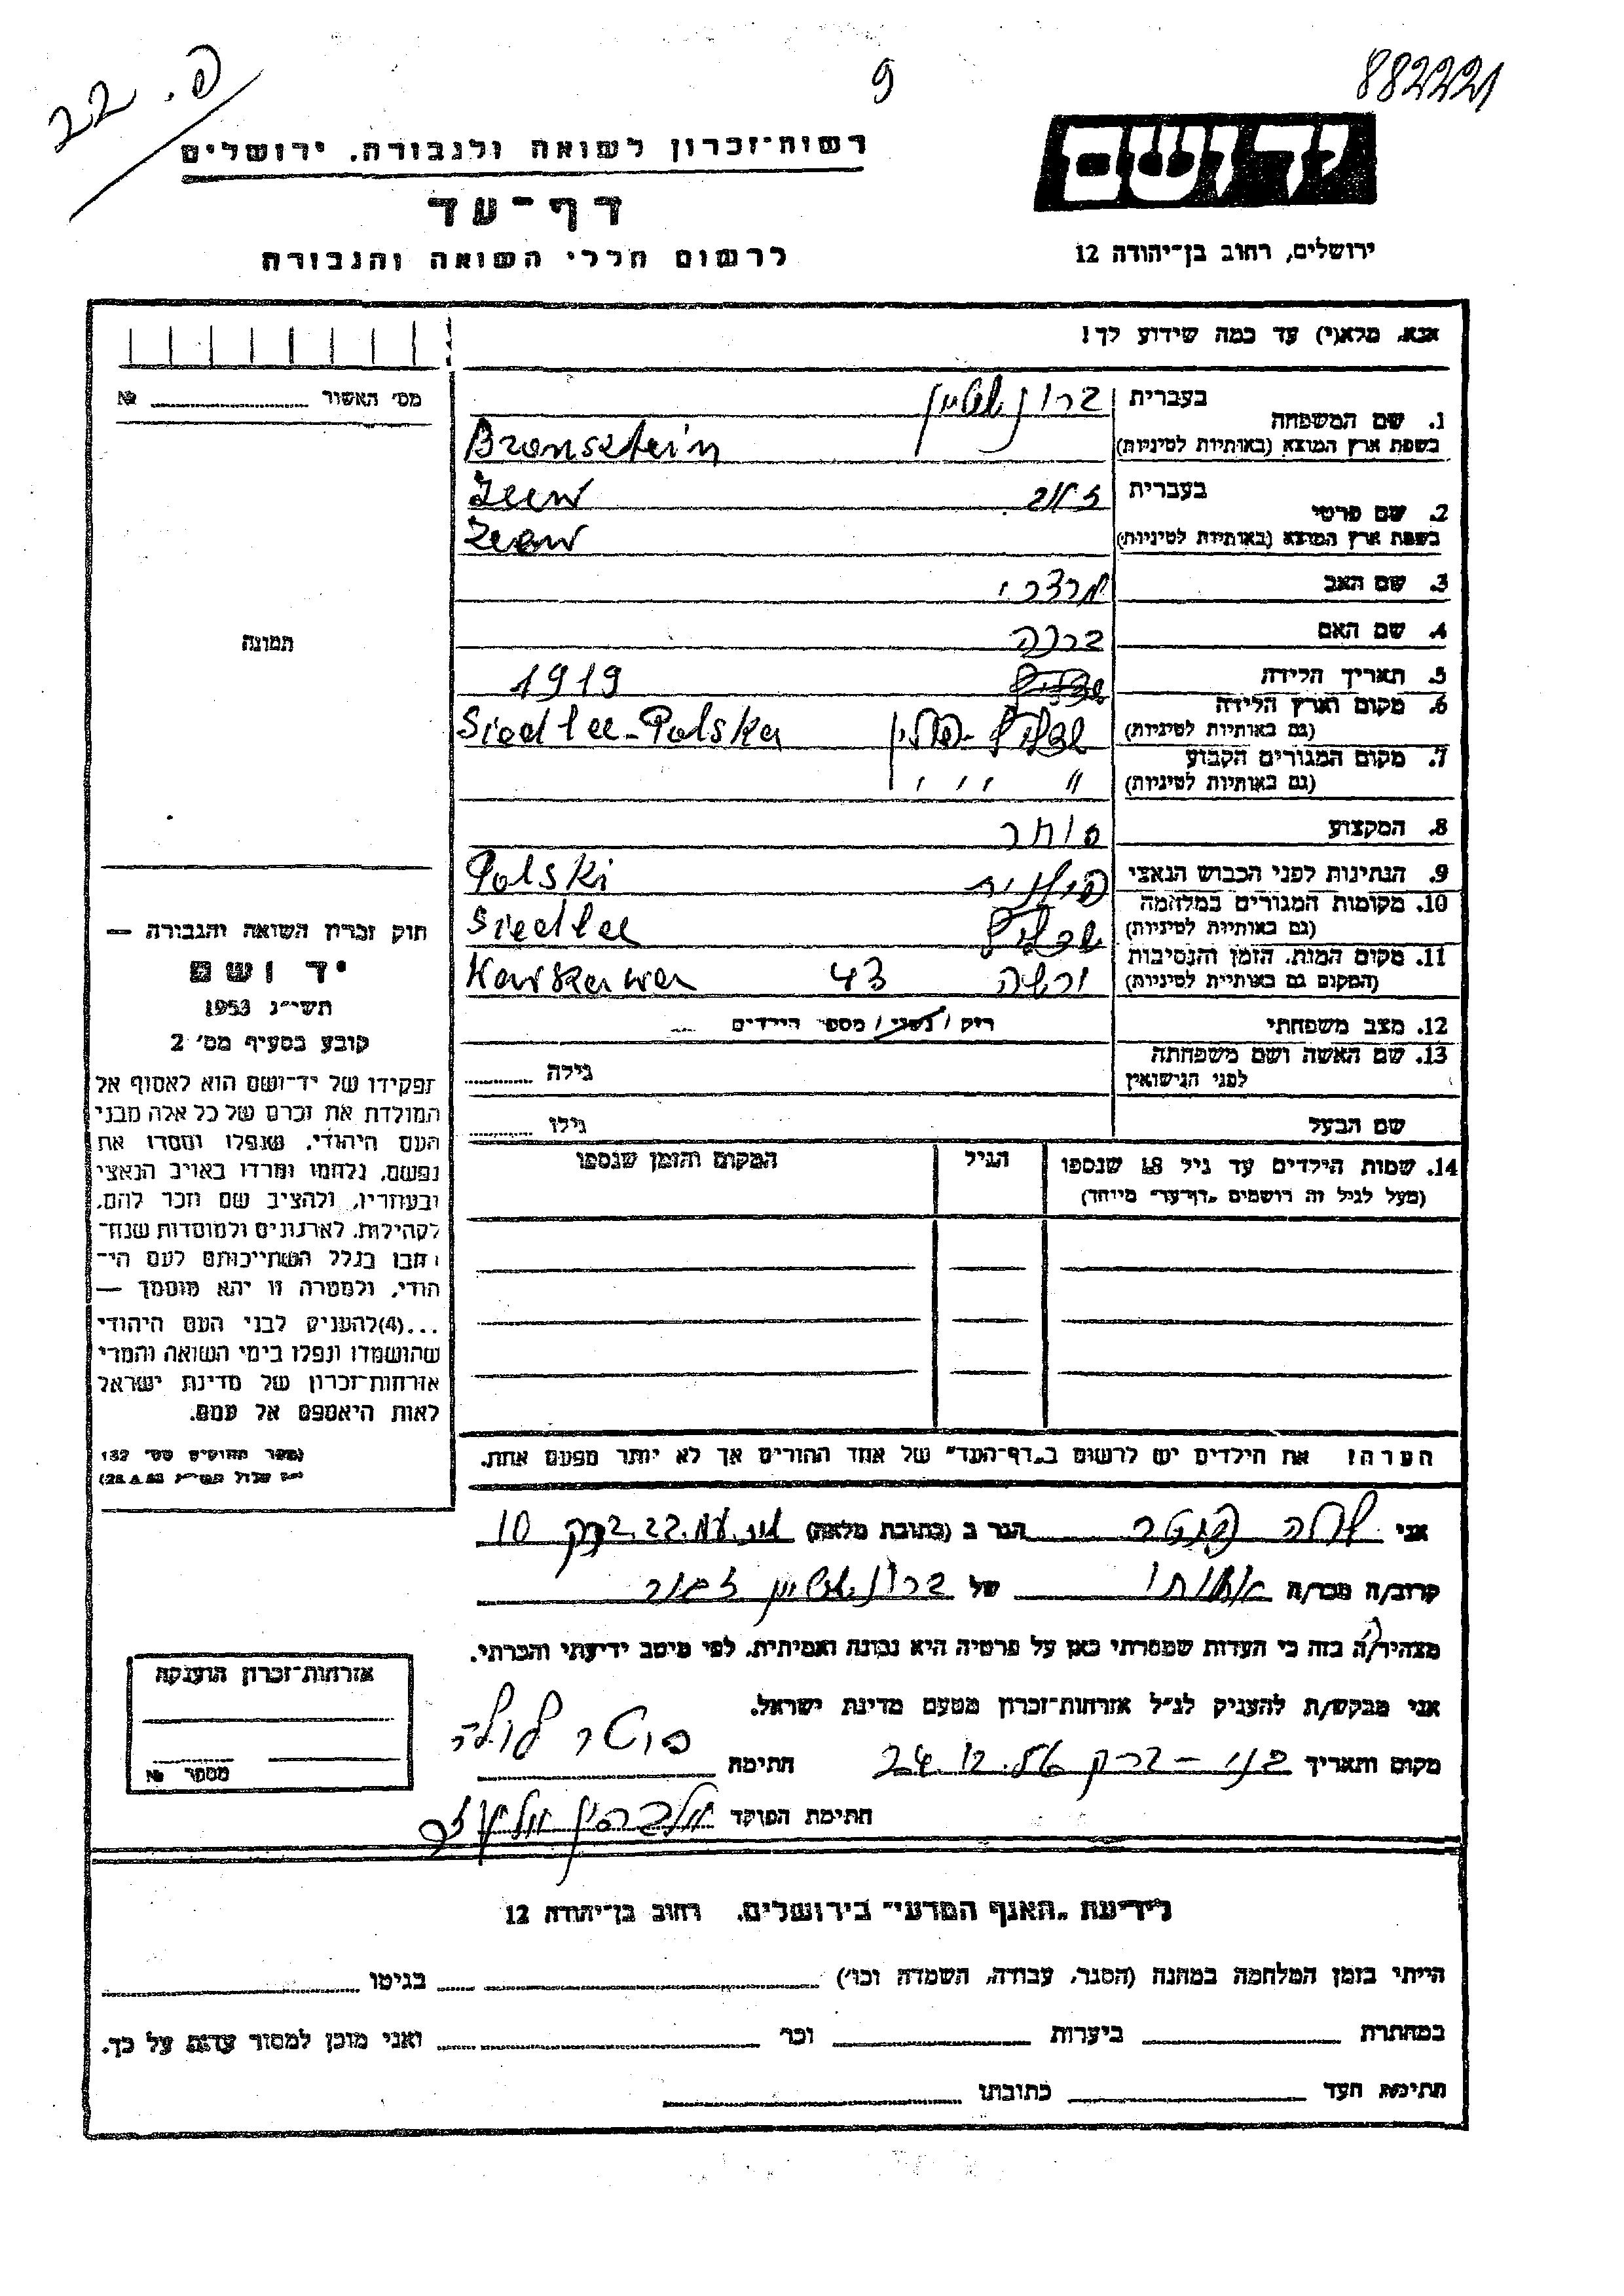 22. פ.
9
882221
יד ושם
רשות־זכרון לשואה ולגבורה, ירושלים
דף־עד
לרשום חללי השואה והגבורה
ירושלים, רחוב בן־יהודה 12
אנא, מלא(י) עד כמה שידוע לך!
מס׳ האשור № 
1. שם המשפחה בעברית ברונשטיין
בשפת ארץ המוצא (באותיות לטיניות) Bronsztein
2. שם פרטי בעברית זאב Zeew
בשפת ארץ המוצא (באותיות לטיניות) Zeew
3. שם האב מרדכי
4. שם האם ברכה
5. תאריך הלידה 1919
6. מקום וארץ הלידה (גם באותיות לטיניות) שדליץ - פולין Siedlce - Polska
7. מקום המגורים הקבוע (גם באותיות לטיניות) " " "
8. המקצוע סוחר
9. הנתינות לפני הכבוש הנאצי פולנית Polski
10. מקומות המגורים במלחמה (גם באותיות לטיניות) שדליץ Siedlce
11. מקום המות, הזמן והנסיבות (המקום גם באותיות לטיניות) ורשה 43 Warszawa
12. מצב משפחתי רוק / נשוי / מספר הילדים
13. שם האשה ושם משפחתה לפני הנישואין גילה
שם הבעל גילו
14. שמות הילדים עד גיל 18 שנספו הגיל המקום והזמן שנספו
(מעל לגיל זה רושמים „דף־עד״ מיוחד)
תמונה
חוק זכרון השואה והגבורה —
יד ושם
תשי״ג 1953
קובע בסעיף מס׳ 2
תפקידו של יד־ושם הוא לאסוף אל
המולדת את זכרם של כל אלה מבני
העם היהודי, שנפלו ומסרו את
נפשם, נלחמו ומרדו באויב הנאצי
ובעוזריו, ולהציב שם וזכר להם,
לקהילות, לארגונים ולמוסדות שנח־
רבו בגלל השתייכותם לעם הי־
הודי, ולמטרה זו יהא מוסמך —
...(4) להעניק לבני העם היהודי
שהושמדו ונפלו בימי השואה והמרי
אזרחות־זכרון של מדינת ישראל
לאות היאספם אל עמם.
(ספר החוקים מס׳ 132
י״ז אלול תשי״ג 28.8.53)
הערה: את הילדים יש לרשום ב„דף־העד״ של אחד ההורים אך לא יותר מפעם אחת.
אני הגר ב (כתובת מלאה) 10
קרוב/ה מכר/ה אחותו של ברונשטיין זאב
מצהיר/ה בזה כי העדות שמסרתי כאן על פרטיה היא נכונה ואמיתית, לפי מיטב ידיעתי והכרתי.
אני מבקש/ת להעניק לנ״ל אזרחות־זכרון מטעם מדינת ישראל.
מקום ותאריך בני - ברק 24.12.56 חתימה
חתימת הפוקד
אזרחות־זכרון הוענקה
מספר №
לידיעת „האגף המדעי״ בירושלים, רחוב בן־יהודה 12
הייתי בזמן המלחמה במחנה (הסגר, עבודה, השמדה וכו׳) בגיטו
במחתרת ביערות וכו׳ ואני מוכן למסור עדות על כך.
חתימת העד כתובתו